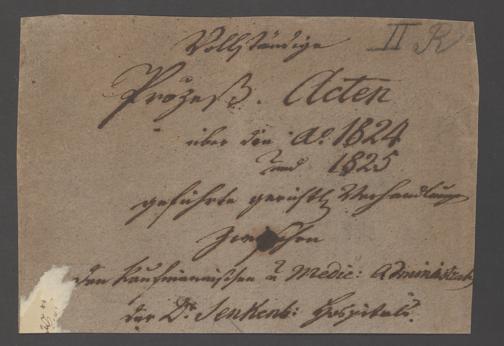 Vollständige II R
Prozeß. Acten
über den Ao. 1824
und 1825
geführte gerichtl. Verhandlung
zwischen
den kaufmännischen u. Medic: Administrat.
des Dr. Senkenb: Hospitals.